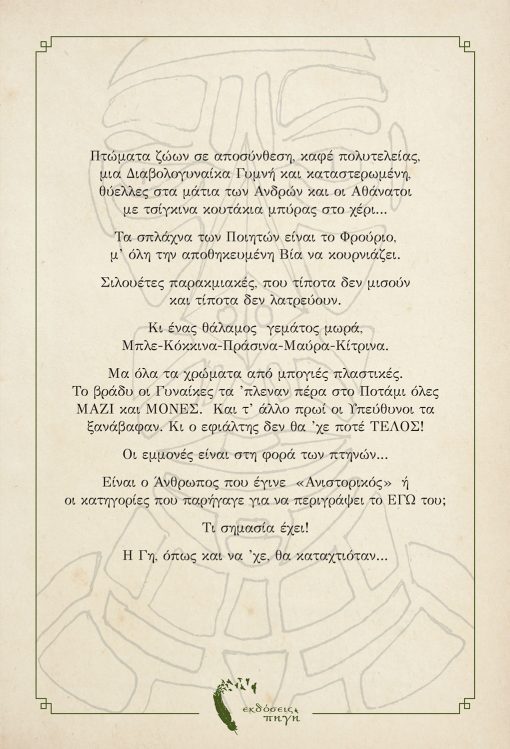 Πτώματα ζώων σε αποσύνθεση, καφέ πολυτελείας,
μια Διαβολογυναίκα Γυμνή και καταστερωμένη,
θύελλες στα μάτια των Ανδρών και οι Αθάνατοι
με τσίγκινα κουτάκια μπύρας στο χέρι...
Τα σπλάχνα των Ποιητών είναι το Φρούριο,
μ’ όλη την αποθηκευμένη Βία να κουρνιάζει.
Σιλουέτες παρακμιακές, που τίποτα δεν μισούν
και τίποτα δεν λατρεύουν.
Κι ένας θάλαμος γεμάτος μωρά,
Μπλε-Κόκκινα-Πράσινα-Μαύρα-Κίτρινα.
Μα όλα τα χρώματα από μπογιές πλαστικές.
Το βράδυ οι Γυναίκες τα ’πλεναν πέρα στο Ποτάμι όλες
ΜΑΖΙ και ΜΟΝΕΣ. Και τ’ άλλο πρωί οι Υπεύθυνοι τα
ξανάβαφαν. Κι ο εφιάλτης δεν θα ’χε ποτέ ΤΕΛΟΣ!
Οι εμμονές είναι στη φορά των πτηνών...
Είναι ο Άνθρωπος που έγινε «Ανιστορικός» ή
οι κατηγορίες που παρήγαγε για να περιγράψει το ΕΓΩ του;
Τι σημασία έχει!
Η Γη, όπως και να ’χε, θα καταχτιόταν...
εκδόσεις
πηγή